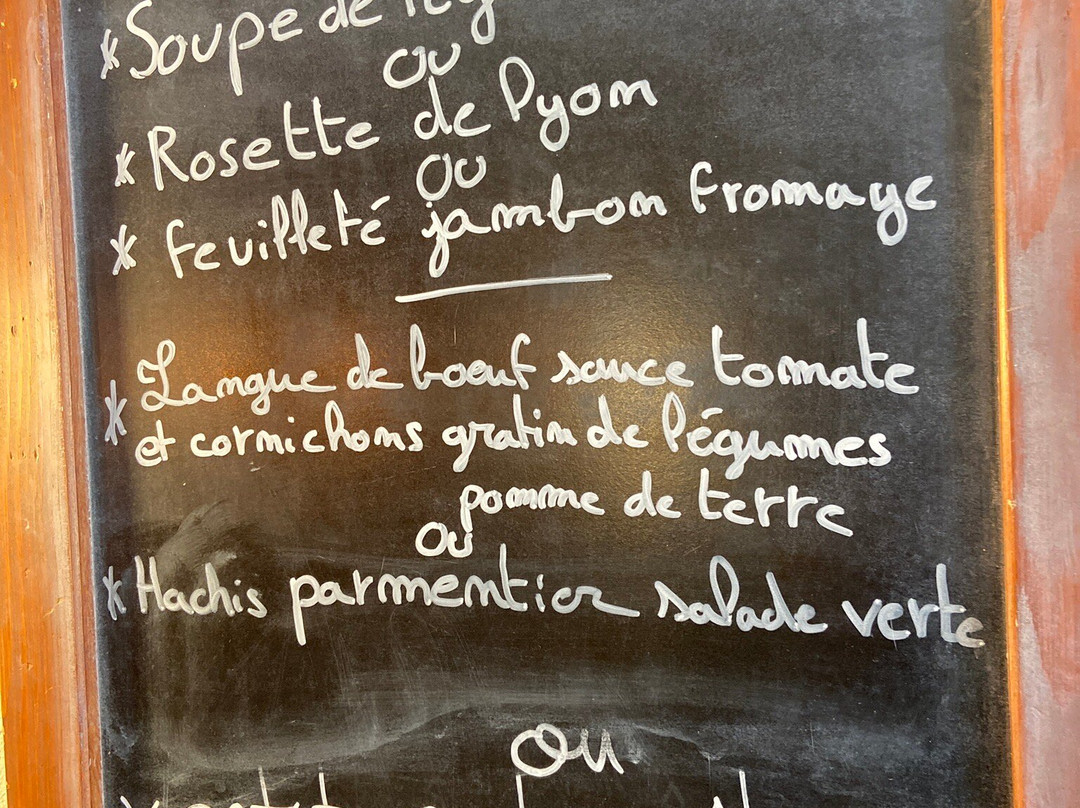 *Soupe de
ou
*Rosette de Lyon
ou
* feuilleté jambon fromage
* Langue de boeuf sauce tomate
et cornichons gratin de légumes
pomme de terre
ou
*Hachis parmentier salade verte
ou